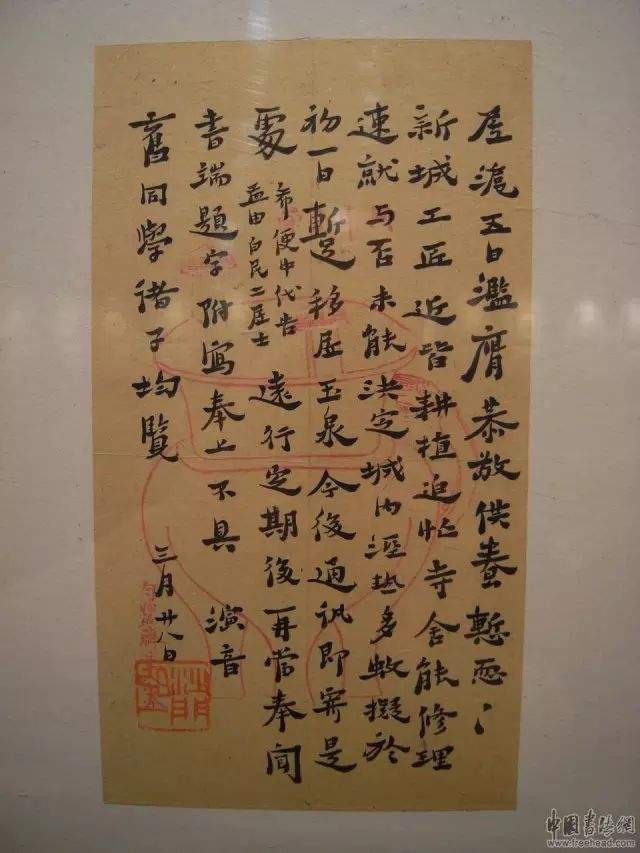 居滬五日濫膺恭敬供養慙恧々
新城工匠近皆耕植迫忙寺舍能修理
速就与否未能決定城内溼熱多蚊擬於
初一日暫移居玉泉今後通訊即寄是
處
希便中代告
益由白民二居士
遠行定期後再當奉聞
書端題字附寫奉上不具 演音
舊同學諸子均覽 三月廿八日
中國書法網
www.freehead.com